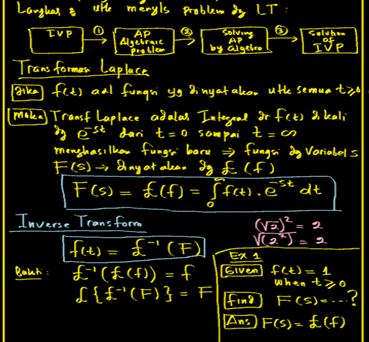 Langkah² utk menyls problem dg LT :
IVP ① AP Algebraic problem ② Solving AP by Algebra ③ Solution of IVP
Transformasi Laplace
Jika f(t) adl fungsi yg dinyatakan utk semua t ≥ 0
Maka Transf Laplace adalah Integral dr f(t) di kali
dg e^-st dari t = 0 sampai t = ∞
menghasilkan fungsi baru ⇒ fungsi dg Variabel s
F(s) → dinyatakan dg £(f)
F(s) = £(f) = ∫₀^∞ f(t) . e^-st dt
Inverse Transform
f(t) = £⁻¹(F)
Bukti:
£⁻¹(£(f)) = f
£{£⁻¹(F)} = F
(√2)² = 2
√(2²) = 2
Ex 1
Given f(t) = 1
when t ≥ 0
find F(s) = ...?
Ans F(s) = £(f)